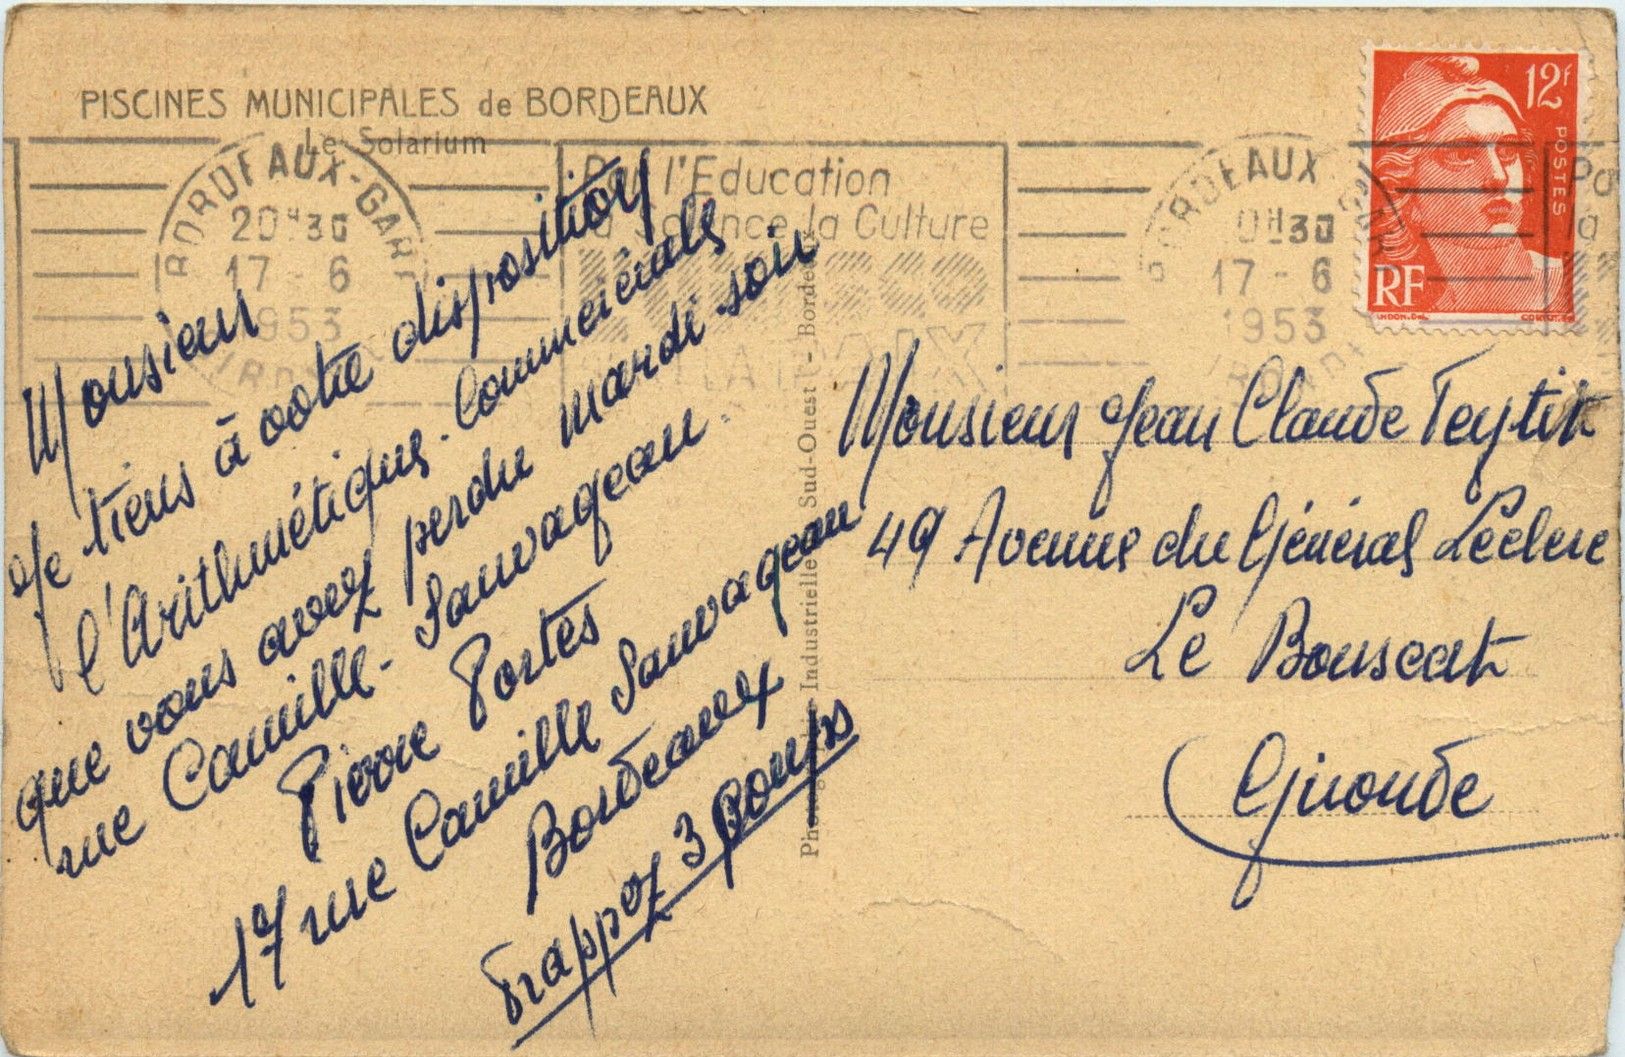 PISCINES MUNICIPALES de BORDEAUX
Le Solarium
BORDEAUX-GARE
20H30
17 - 6
1953
GIRONDE
l'Education
la Science la Culture
UNESCO
LA PAIX
BORDEAUX
H30
17 - 6
1953
12F
POSTES
RF
GANDON
Monsieur
Je tiens à votre disposition
l'Arithmétique. Commerciale
que vous avez perdu mardi soir
rue Camille. Sauvageau.
Pierre Portes
17 rue Camille Sauvageau
Bordeaux
Frappez 3 Coups
Industrielle Sud-Ouest - Bordeaux
Monsieur Jean Claude Teytit
49 Avenue du Général Leclerc
Le Bouscat
Gironde